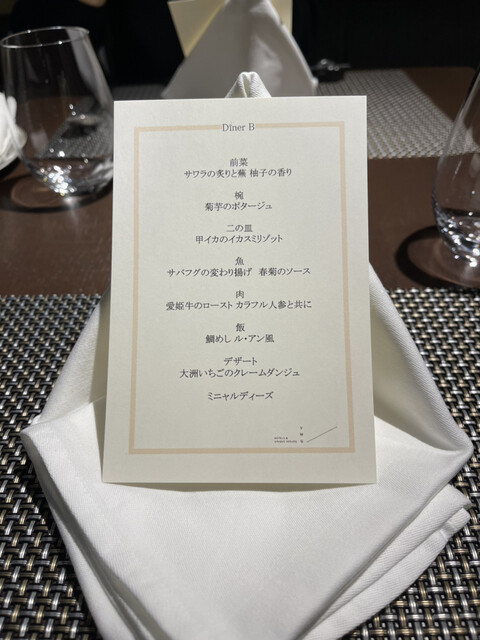 Dîner B
前菜
サワラの炙りと蕪 柚子の香り
椀
菊芋のポタージュ
二の皿
甲イカのイカスミリゾット
魚
サバフグの変わり揚げ 春菊のソース
肉
愛姫牛のロースト カラフル人参と共に
飯
鯛めし ル・アン風
デザート
大洲いちごのクレームダンジュ
ミニャルディーズ